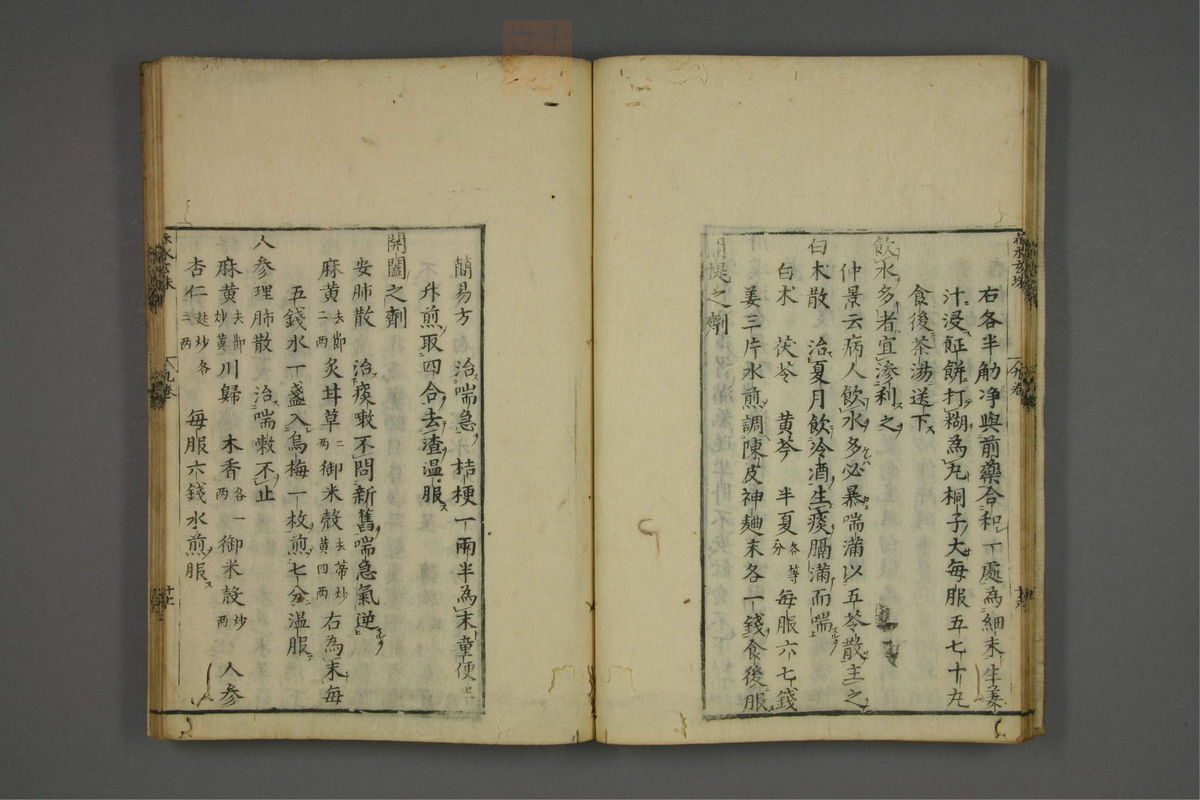 右各半觔净與前藥合和一處為細末生姜
汁浸蒸餅打糊為丸桐子大每服五七十丸
食後茶湯送下
飲水多者宜滲利之
仲景云病人飲水多必暴喘滿以五苓散主之
白术散 治夏月飲冷酒生痰膈滿而喘
白术 茯苓 黄芩 半夏各等分 每服六七錢
姜三片水煎調陳皮神麯末各一錢食後服
提之劑
簡易方 治喘急 桔梗一兩半為末童便半
升煎取四合去渣温服
開闔之劑
安肺散 治痰嗽不問新舊喘急氣逆
麻黄去節二两 炙甘草二两 御米殼去蒂炒黄四两 右為末每
五錢水一盞入烏梅一枚煎七分温服
人參理肺散 治喘嗽不止
麻黄去節炒黄 川歸 木香各一两 御米殼炒两 人參
杏仁麸炒各二两 每服六錢水煎服
赤水玄珠
九卷